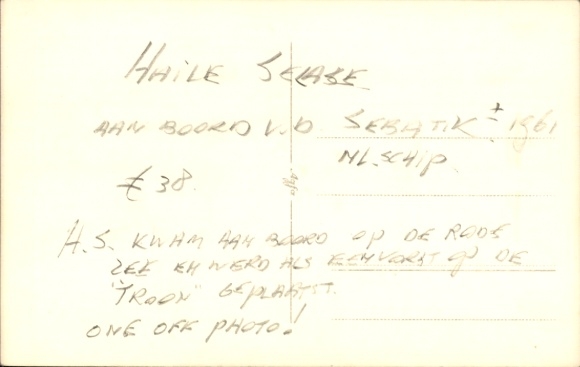 HAILE SELASE
AAN BOORD V.D. SEBATIK ± 1961
NL. SCHIP.
€ 38.
H.S. KWAM AAN BOORD OP DE RODE
ZEE EN WERD ALS EEN VORST OP DE
"TROON" GEPLAATST.
ONE OFF PHOTO!